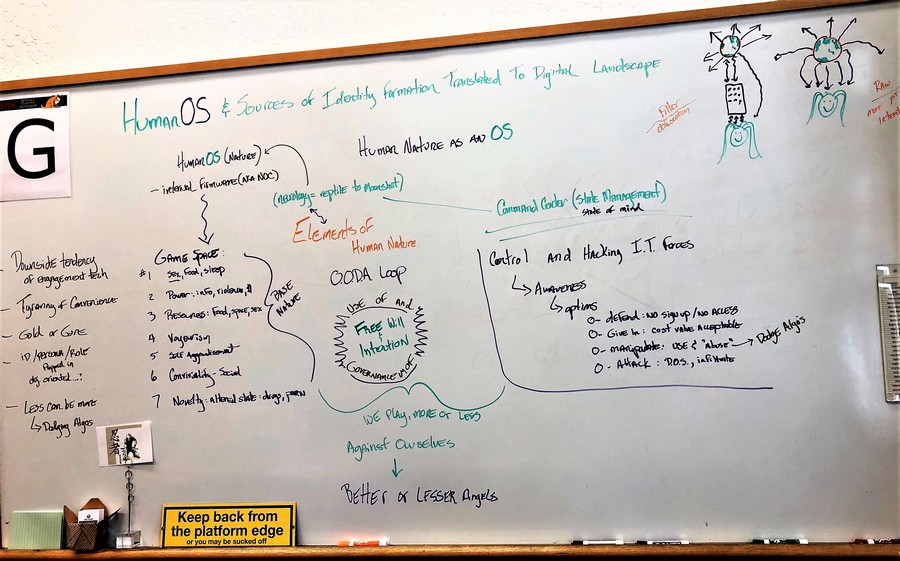 HumanOS & Sources of Identity Formation Translated To Digital Landscape
G
Human Nature as an OS
HumanOS (Nature)
- internal Firmware (AKA NOC)
(neurology = reptile to moonshot)
Elements of
Human Nature
OODA Loop
USE OF And
FREE Will
&
Intention
Governance
WE PLAY, MORE OR LESS
Against Ourselves
BETTER or LESSER Angels
Game Space:
#1 Sex, Food, Sleep
2 Power: info, violence, $
3 Resources: Food, space, sex
4 Voyeurism
5 Self Aggrandizement
6 Conviviality - Social
7 Novelty: altered state: drugs, porn
BASE
NATURE
- Downside tendency
of engagement tech
- Tyranny of Convenience
- Gold or Gore
- ID/Persona/Role
obj. oriented...
- Less can be more
Dodging Algos
Command Center (State Management)
State of mind
Control and Hacking I.T. Forces
Awareness
options
O- defend: NO sign up / NO ACCESS
O- Give In: cost value acceptable
O- manipulate: USE & "abuse" → Dodge Algos
O- Attack: D.O.S., infiltrate
Filter
obfuscation
Raw
Keep back from
the platform edge
or you may be sucked off